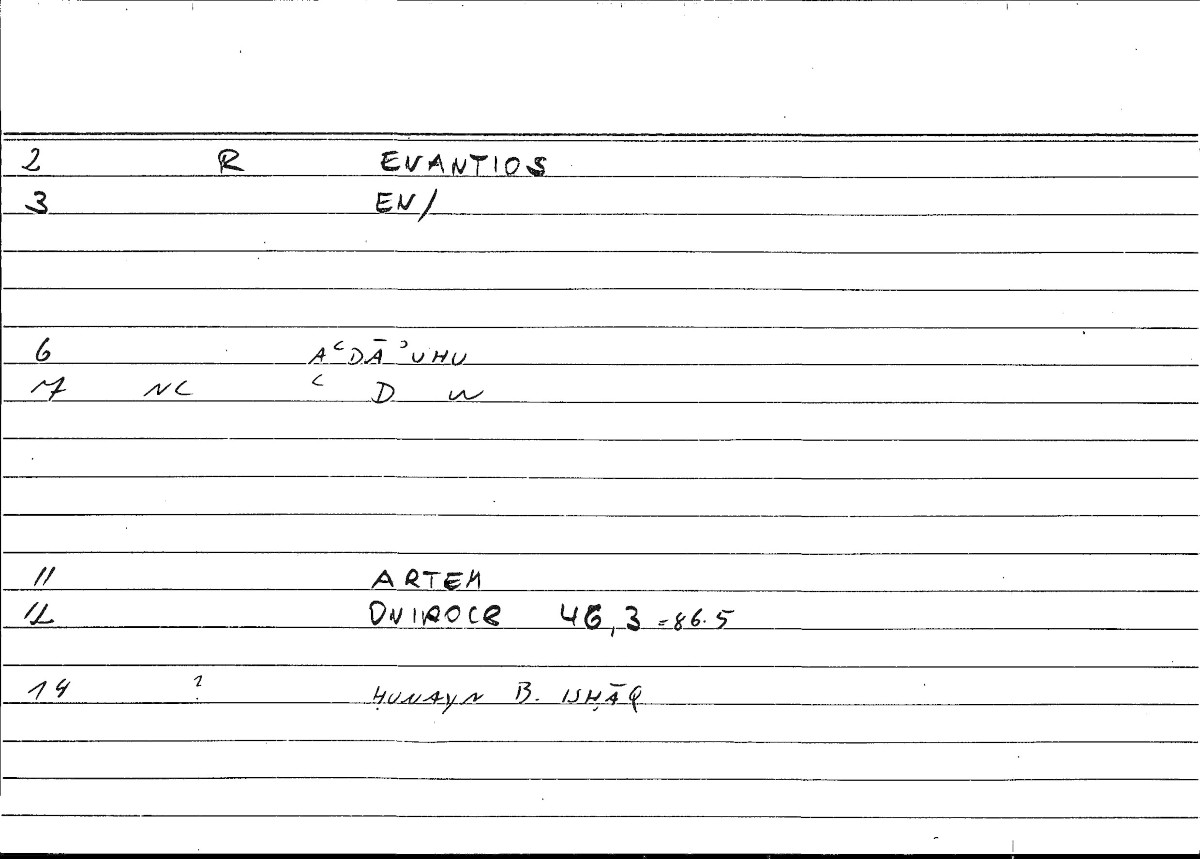 2 R ENANTIOS
3 EN/
6 AʿDĀʾUHU
7 NC ʿ D W
11 ARTEM
12 ONIROCR 46,3 = 86.5
14 ? ḤUNAYN B. ISḤĀQ